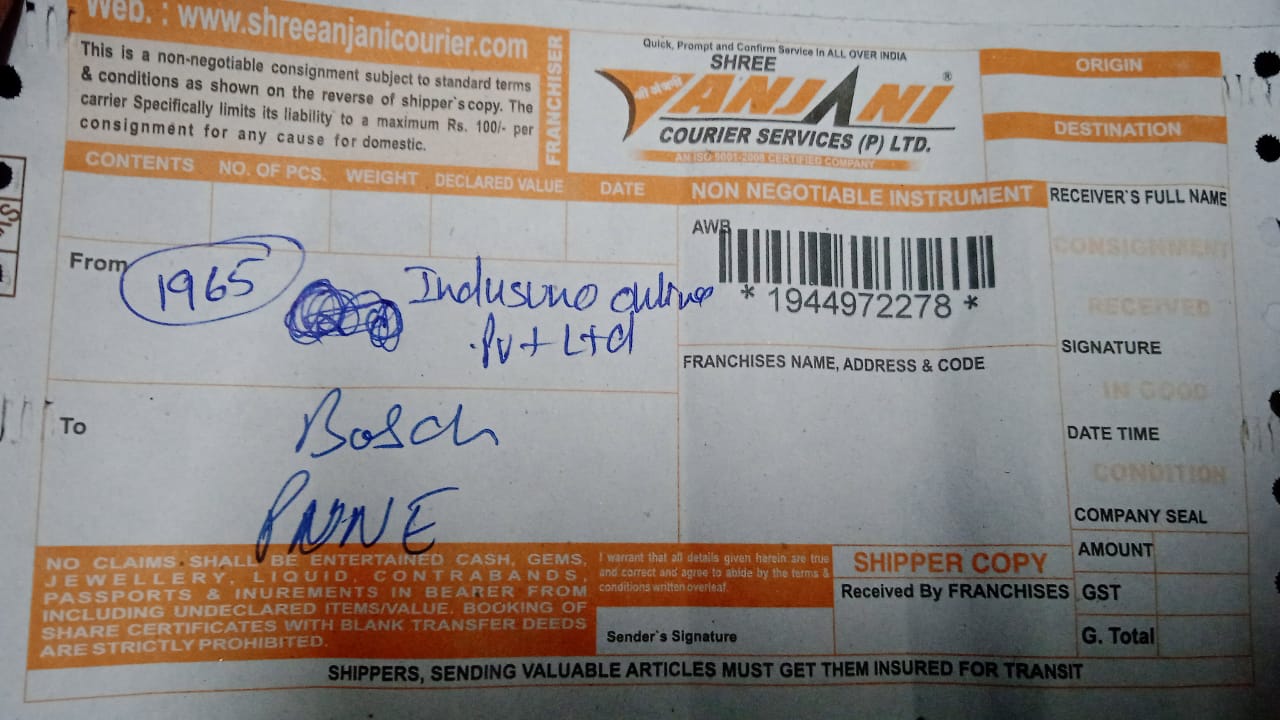 Web. : www.shreeanjanicourier.com
This is a non-negotiable consignment subject to standard terms
& conditions as shown on the reverse of shipper`s copy. The
carrier Specifically limits its liability to a maximum Rs. 100/- per
consignment for any cause for domestic.
FRANCHISER
Quick, Prompt and Confirm Service In ALL OVER INDIA
SHREE
श्री अंजनी
ANJANI ®
COURIER SERVICES (P) LTD.
AN ISO 9001-2008 CERTIFIED COMPANY
ORIGIN
DESTINATION
CONTENTS NO. OF PCS. WEIGHT DECLARED VALUE DATE
NON NEGOTIABLE INSTRUMENT
RECEIVER`S FULL NAME
AWB
* 1944972278 *
CONSIGNMENT
RECEIVED
From 1965 Online
Pvt Ltd
SIGNATURE
FRANCHISES NAME, ADDRESS & CODE
IN GOOD
To Bosch
DATE TIME
CONDITION
COMPANY SEAL
NO CLAIMS SHALL BE ENTERTAINED CASH, GEMS,
JEWELLERY, LIQUID, CONTRABANDS,
PASSPORTS & INUREMENTS IN BEARER FROM
INCLUDING UNDECLARED ITEMS/VALUE. BOOKING OF
SHARE CERTIFICATES WITH BLANK TRANSFER DEEDS
ARE STRICTLY PROHIBITED.
I warrant that all details given herein are true
and correct and agree to abide by the terms &
conditions written overleaf.
Sender`s Signature
SHIPPER COPY
Received By FRANCHISES
AMOUNT
GST
G. Total
SHIPPERS, SENDING VALUABLE ARTICLES MUST GET THEM INSURED FOR TRANSIT